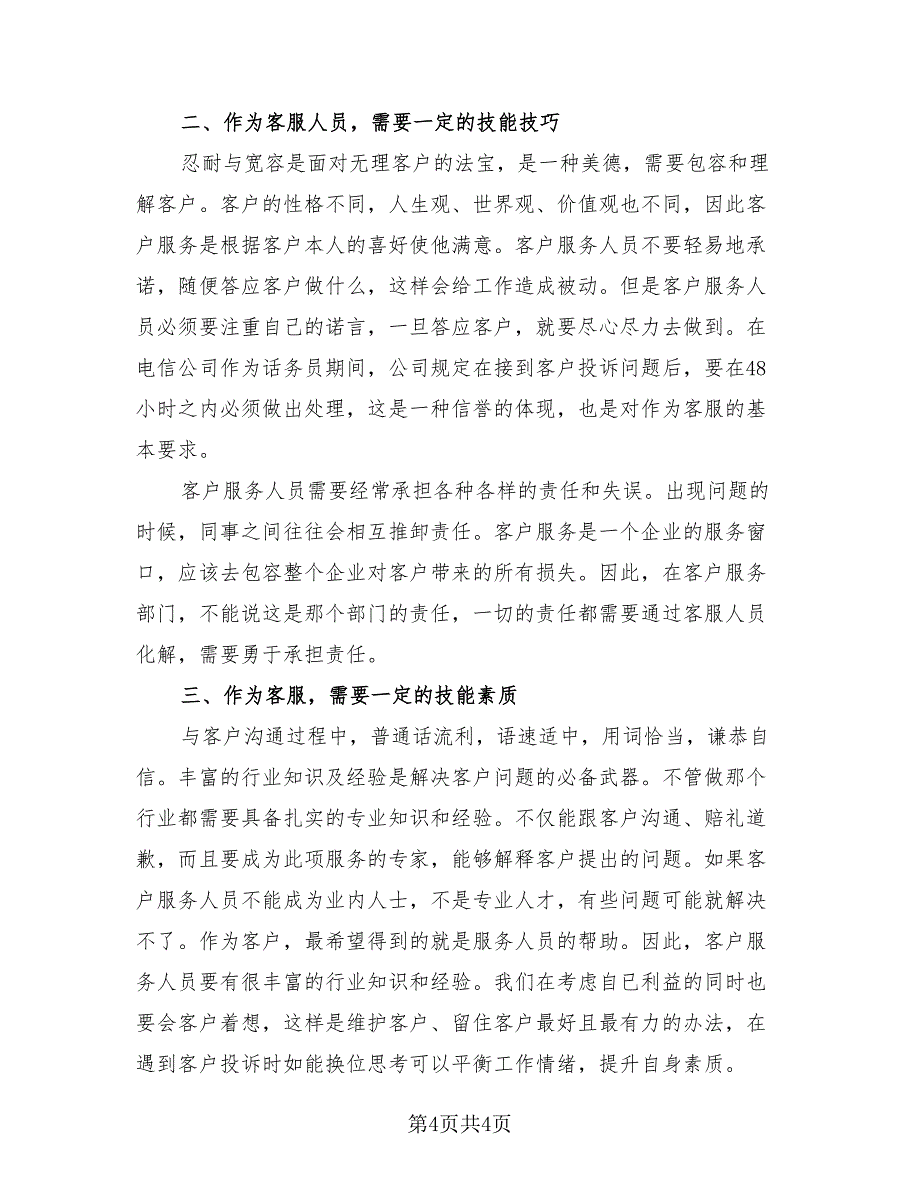 二、作为客服人员，需要一定的技能技巧
忍耐与宽容是面对无理客户的法宝，是一种美德，需要包容和理
解客户。客户的性格不同，人生观、世界观、价值观也不同，因此客
户服务是根据客户本人的喜好使他满意。客户服务人员不要轻易地承
诺，随便答应客户做什么，这样会给工作造成被动。但是客户服务人
员必须要注重自己的诺言，一旦答应客户，就要尽心尽力去做到。在
电信公司作为话务员期间，公司规定在接到客户投诉问题后，要在48
小时之内必须做出处理，这是一种信誉的体现，也是对作为客服的基
本要求。
客户服务人员需要经常承担各种各样的责任和失误。出现问题的
时候，同事之间往往会相互推卸责任。客户服务是一个企业的服务窗
口，应该去包容整个企业对客户带来的所有损失。因此，在客户服务
部门，不能说这是那个部门的责任，一切的责任都需要通过客服人员
化解，需要勇于承担责任。
三、作为客服，需要一定的技能素质
与客户沟通过程中，普通话流利，语速适中，用词恰当，谦恭自
信。丰富的行业知识及经验是解决客户问题的必备武器。不管做那个
行业都需要具备扎实的专业知识和经验。不仅能跟客户沟通、赔礼道
歉，而且要成为此项服务的专家，能够解释客户提出的问题。如果客
户服务人员不能成为业内人士，不是专业人才，有些问题可能就解决
不了。作为客户，最希望得到的就是服务人员的帮助。因此，客户服
务人员要有很丰富的行业知识和经验。我们在考虑自已利益的同时也
要会客户着想，这样是维护客户、留住客户最好且最有力的办法，在
遇到客户投诉时如能换位思考可以平衡工作情绪，提升自身素质。
第4页共4页